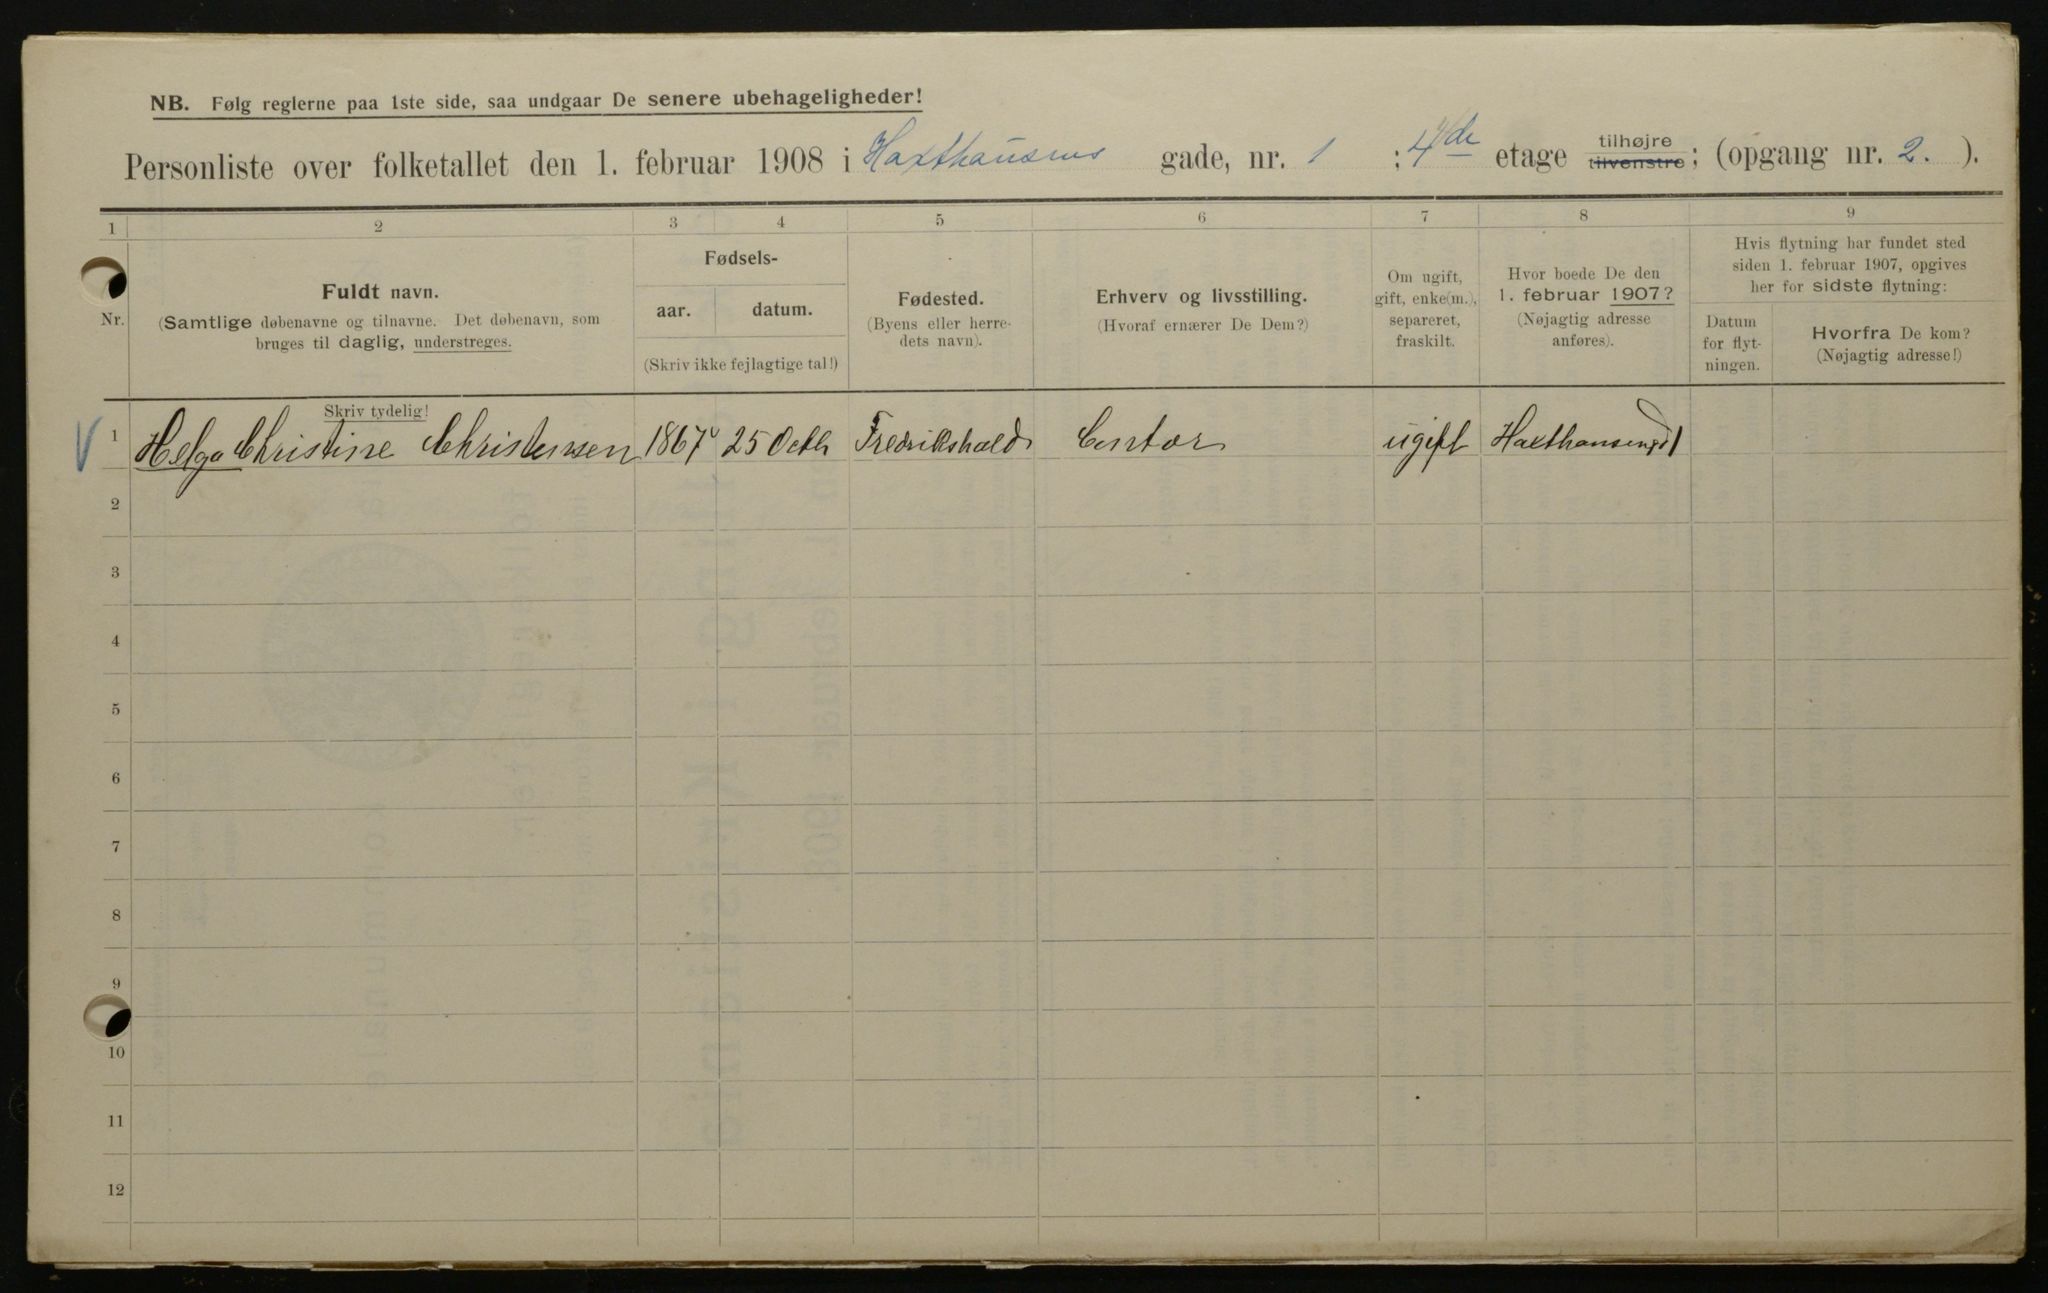 NB. Følg reglerne paa 1ste side, saa undgaar De senere ubehageligheder!
Personliste over folketallet den 1. februar 1908 i Haxthausens gade, nr. 1 ; 4de etage tilhøjre tilvenstre; (opgang nr. 2. ).
1 2 3 4 5 6 7 8 9
Nr.
Fuldt navn.
(Samtlige døbenavne og tilnavne. Det døbenavn, som
bruges til daglig, understreges.
Fødsels-
aar. datum.
(Skriv ikke fejlagtige tal!)
Fødested.
(Byens eller herre-
dets navn).
Erhverv og livsstilling.
(Hvoraf ernærer De Dem?)
Om ugift,
gift, enke(m.),
separeret,
fraskilt.
Hvor boede De den
1. februar 1907?
(Nøjagtig adresse
anføres).
Hvis flytning har fundet sted
siden 1. februar 1907, opgives
her for sidste flytning:
Datum
for flyt-
ningen.
Hvorfra De kom?
(Nøjagtig adresse!)
Skriv tydelig!
1 Helga Christine Christensen 1867 25 Octb Fredrikshald Contor ugift Haxthausensgd 1
2
3
4
5
6
7
8
9
10
11
12